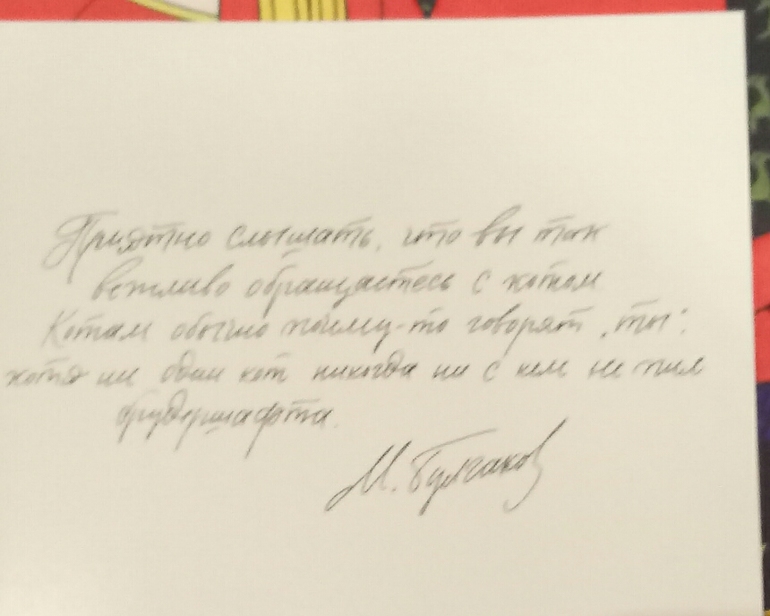 Приятно слышать, что вы так
вежливо обращаетесь с котом
Котам обычно почему-то говорят „ты“,
хотя ни один кот никогда ни с кем не пил
брудершафта.
М. Булгаков